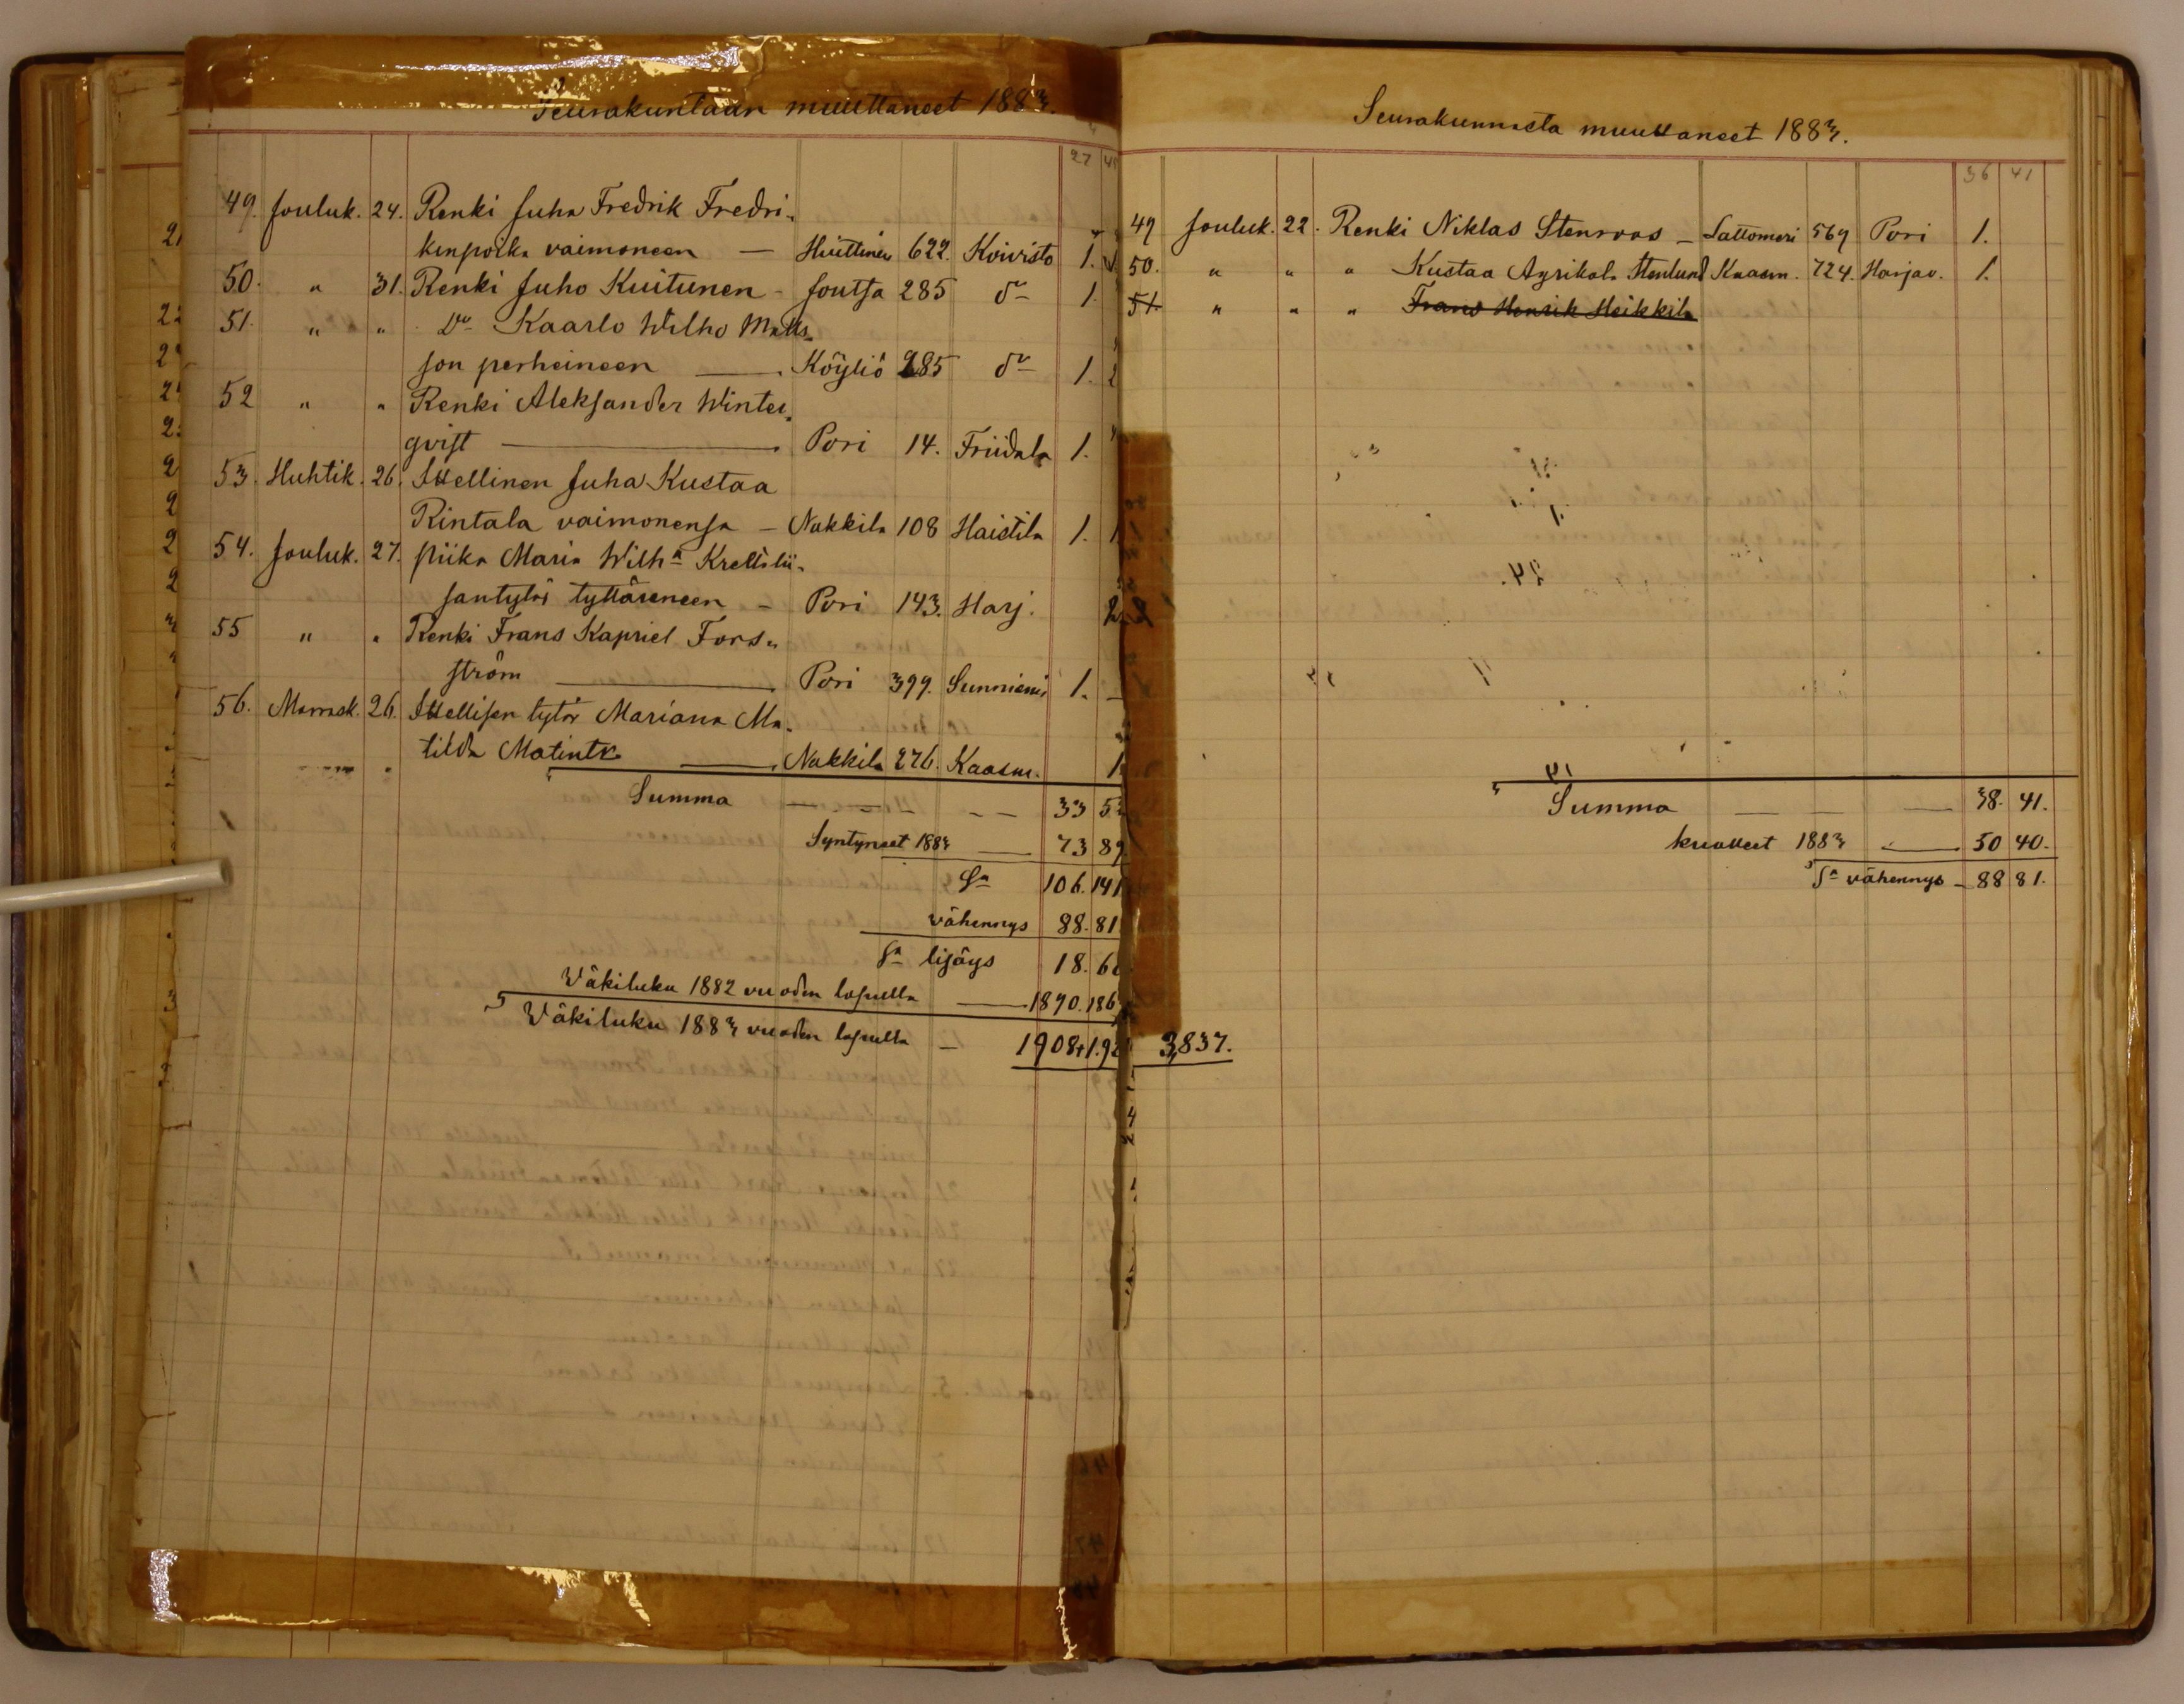 Seurakuntaan muuttaneet 1883.
27
49. Jouluk. 24. Renki Juha Fredrik Fredri-
kinpoika vaimoneen — Huittinen 622. Koivisto 1.
50. " 31. Renki Juho Kuitunen - Joutsa 285 do 1.
51. " " Do Kaarlo Wilho Matts-
son perheineen — Köyliö 285 do 1. 2
52 " " Renki Aleksander Winter-
qvist — Pori 14. Friidala 1.
53. Huhtik. 26. Itsellinen Juha Kustaa
Rintala vaimonensa — Nakkila 108 Haistila 1. 1
54. Jouluk. 27. piika Maria Wilha
tyttäreneen — Pori 143. Harj. 2
55 " " Renki Frans Kapriel Fors-
ström — Pori 399. Sunniemi 1. —
56. Marrask. 26. Itsellisen tytär Mariana Ma-
tilda — Nakkila 276. Kaasm. 1.
Summa — — — 33 5
Syntyneet 1883 — 73 89.
Sa 106. 141
vähennys 88. 81
Sa lisäys 18. 60
Wäkiluku 1882 vuoden lopulla — 1890. 186
Wäkiluku 1883 vuoden lopulla — 1908+1.92 3,837.
Seurakunnasta muuttaneet 1883.
36 41
49 Jouluk. 22. Renki Niklas Stenroos — Lattomeri 569 Pori 1.
50. " " " Kustaa Agrikola Stenlund Kaasm. 724. Harjav. 1.
51. " " " Frans Henrik Heikkilä
Summa — — — 38. 41.
kuolleet 1883 — 50 40.
Sa vähennys — 88 81.